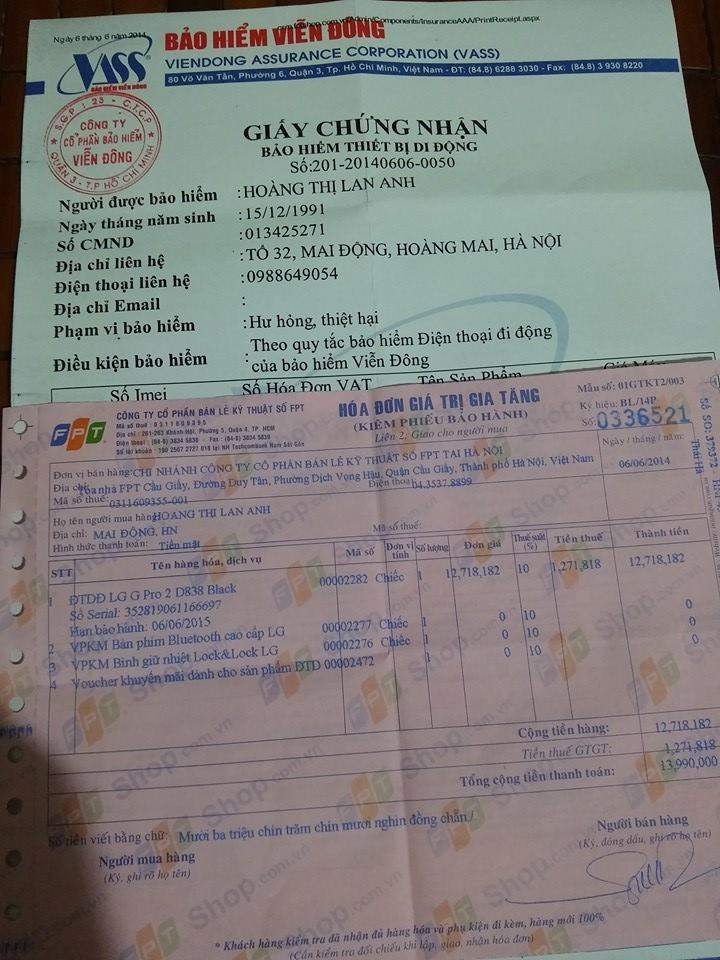 Ngày 6 tháng 6 năm 2014
VASS
BẢO HIỂM VIỄN ĐÔNG
BẢO HIỂM VIỄN ĐÔNG
VIENDONG ASSURANCE CORPORATION (VASS)
80 Võ Văn Tần, Phường 6, Quận 3, Tp. Hồ Chí Minh, Việt Nam - ĐT: (84.8) 6288 3030 - Fax: (84.8) 3 930 8220
S.G.P: 23 - C.T.C.P
CÔNG TY
CỔ PHẦN BẢO HIỂM
VIỄN ĐÔNG
QUẬN 3 - T.P HỒ CHÍ MINH
GIẤY CHỨNG NHẬN
BẢO HIỂM THIẾT BỊ DI ĐỘNG
Số:201-20140606-0050
Người được bảo hiểm :HOÀNG THỊ LAN ANH
Ngày tháng năm sinh :15/12/1991
Số CMND :013425271
Địa chỉ liên hệ :TỔ 32, MAI ĐỘNG, HOÀNG MAI, HÀ NỘI
Điện thoại liên hệ :0988649054
Địa chỉ Email :
Phạm vị bảo hiểm :Hư hỏng, thiệt hại
Điều kiện bảo hiểm :Theo quy tắc bảo hiểm Điện thoại di động
của bảo hiểm Viễn Đông
Số Imei Số Hóa Đơn VAT Tên Sản Phẩm
FPT
CÔNG TY CỔ PHẦN BÁN LẺ KỸ THUẬT SỐ FPT
Mã số thuế: 0311609355
Địa chỉ: 261-263 Khánh Hội, Phường 5, Quận 4, TP. HCM
HÓA ĐƠN GIÁ TRỊ GIA TĂNG
(KIÊM PHIẾU BẢO HÀNH)
Liên 2: Giao cho người mua
Mẫu số: 01GTKT2/003
Ký hiệu: BL/14P
Số: 0336521
Ngày / tháng / năm:
06/06/2014
Đơn vị bán hàng: CHI NHÁNH CÔNG TY CỔ PHẦN BÁN LẺ KỸ THUẬT SỐ FPT TẠI HÀ NỘI
Địa chỉ: Tòa nhà FPT Cầu Giấy, Đường Duy Tân, Phường Dịch Vọng Hậu, Quận Cầu Giấy, Thành phố Hà Nội, Việt Nam
Mã số thuế: 0311609355-001 Điện thoại: 04.3537.8899
Họ tên người mua hàng: HOANG THI LAN ANH
Địa chỉ: MAI ĐỘNG, HN Mã số thuế:
Hình thức thanh toán: Tiền mặt
STT Tên hàng hóa, dịch vụ Mã số Đơn vị tính Số lượng Đơn giá Thuế suất (%) Tiền thuế Thành tiền
1 ĐTDĐ LG G Pro 2 D838 Black 00002282 Chiếc 1 12,718,182 10 1,271,818 12,718,182
Số Serial: 352819061166697
Hạn bảo hành: 06/06/2015
2 VPKM Bàn phím Bluetooth cao cấp LG 00002277 Chiếc 1 0 10 0
3 VPKM Bình giữ nhiệt Lock&Lock LG 00002276 Chiếc 1 0 10 0
4 Voucher khuyến mãi dành cho sản phẩm ĐTD 00002472 1 0 10 0
Cộng tiền hàng: 12,718,182
Tiền thuế GTGT: 1,271,818
Tổng cộng tiền thanh toán: 13,990,000
Số tiền viết bằng chữ: Mười ba triệu chín trăm chín mươi nghìn đồng chẵn./
Người mua hàng
(Ký, ghi rõ họ tên)
Người bán hàng
(Ký, đóng dấu, ghi rõ họ tên)
* Khách hàng kiểm tra đã nhận đủ hàng hóa và phụ kiện đi kèm, hàng mới 100%
(Cần kiểm tra đối chiếu khi lập, giao, nhận hóa đơn)